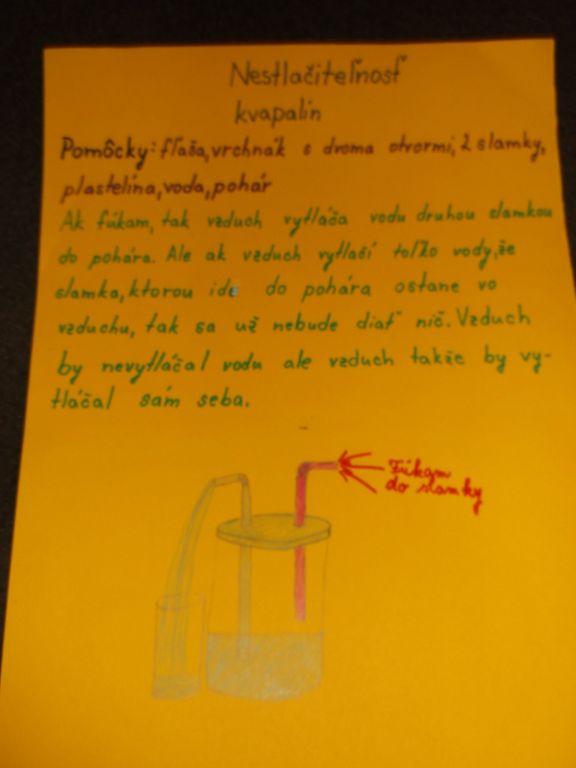 Nestlačiteľnosť
kvapalín
Pomôcky: fľaša, vrchnák s dvoma otvormi, 2 slamky,
plastelína, voda, pohár
Ak fúkam, tak vzduch vytláča vodu druhou slamkou
do pohára. Ale ak vzduch vytlačí toľko vody, že
slamka, ktorou ide do pohára ostane vo
vzduchu, tak sa už nebude diať nič. Vzduch
by nevytláčal vodu ale vzduch takže by vy-
tláčal sám seba.
Fúkam
do slamky